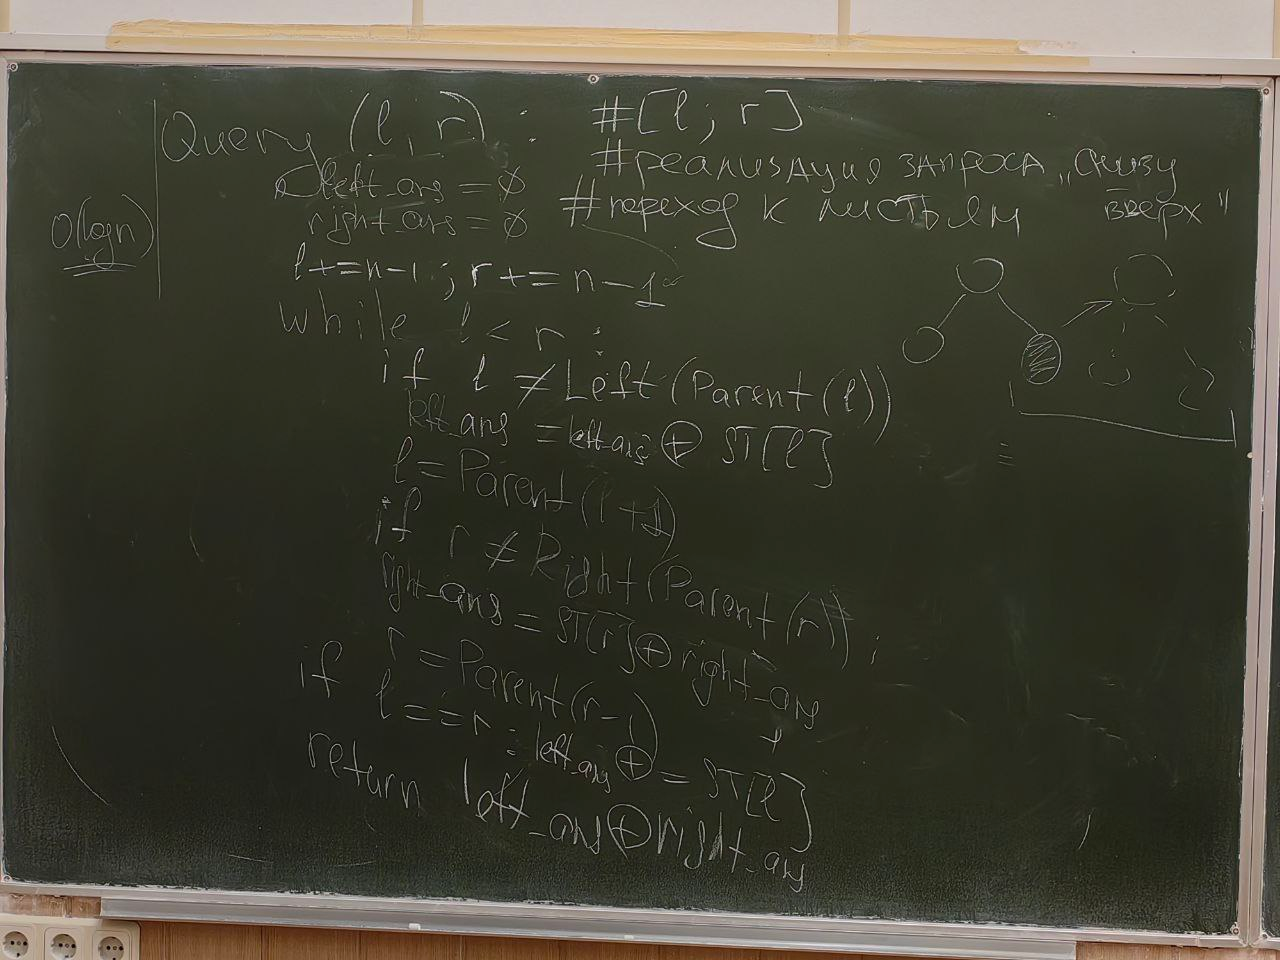 Query (l, r) : #[l; r]
#реализация запроса „снизу вверх"
left_ans = ∅
right_ans = ∅
#переход к листьям
O(log n)
l += n-1 ; r += n-1
while l < r :
if l ≠ Left(Parent(l))
left_ans = left_ans ⊕ ST[l]
l = Parent(l+1)
if r ≠ Right(Parent(r)) :
right_ans = ST[r] ⊕ right_ans
r = Parent(r-1)
if l == r : left_ans ⊕= ST[l]
return left_ans ⊕ right_ans